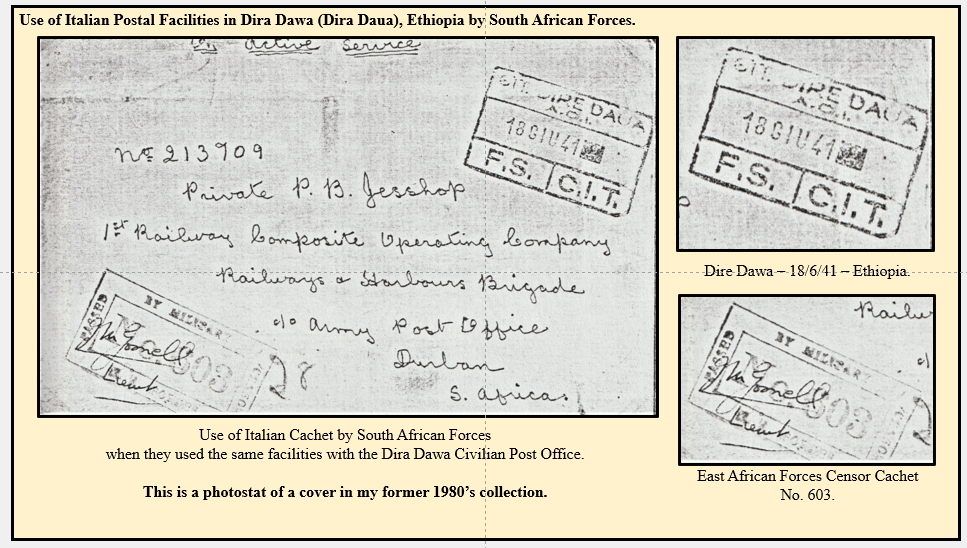 Use of Italian Postal Facilities in Dira Dawa (Dira Daua), Ethiopia by South African Forces.
On Active Service
CIT. DIRE DAUA
A.O.I.
18 GIU 41
F.S. C.I.T.
No 213709
Private P. B. Jesshop
1st Railway Composite Operating Company
Railways & Harbours Brigade
c/o Army Post Office
Durban
S. Africa.
PASSED
BY MILITARY
No 603
28
Use of Italian Cachet by South African Forces
when they used the same facilities with the Dira Dawa Civilian Post Office.
This is a photostat of a cover in my former 1980’s collection.
CIT. DIRE DAUA
A.O.I.
18 GIU 41
F.S. C.I.T.
Dire Dawa – 18/6/41 – Ethiopia.
Railw
c/
PASSED
BY MILITAR
No 603
2
East African Forces Censor Cachet
No. 603.